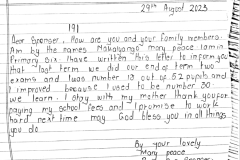 29th August 2023
191
Dear Sponsor, How are you and your family members.
Am by the names Mary peace I am in
Primary Six I have written this letter to inform you
that last term we did our end of term two
exams and I was number 13 out of 52 pupils and
I improved because I used to be number 30
we learn. I stay with my mother Thank you for
paying my school fees and I promise to work
hard next time may God bless you in all things
you do
By your lovely
Mary peace